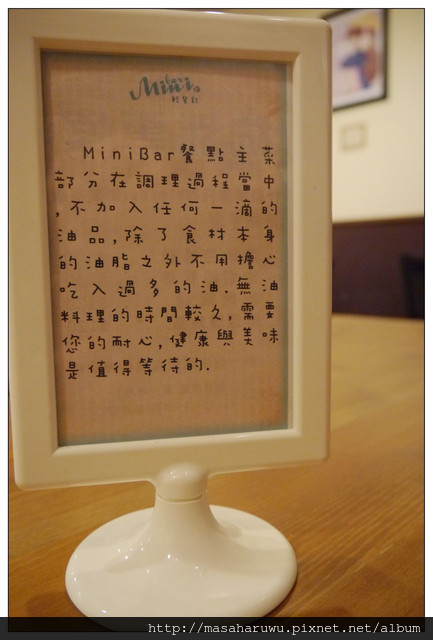 Mini
MiniBar餐點主菜
部分在調理過程當中
,不加入任何一滴的
油品,除了食材本身
的油脂之外不用擔心
吃入過多的油.無油
料理的時間較久,需要
您的耐心,健康與美味
是值得等待的.
http://masaharuwu.pixnet.net/album